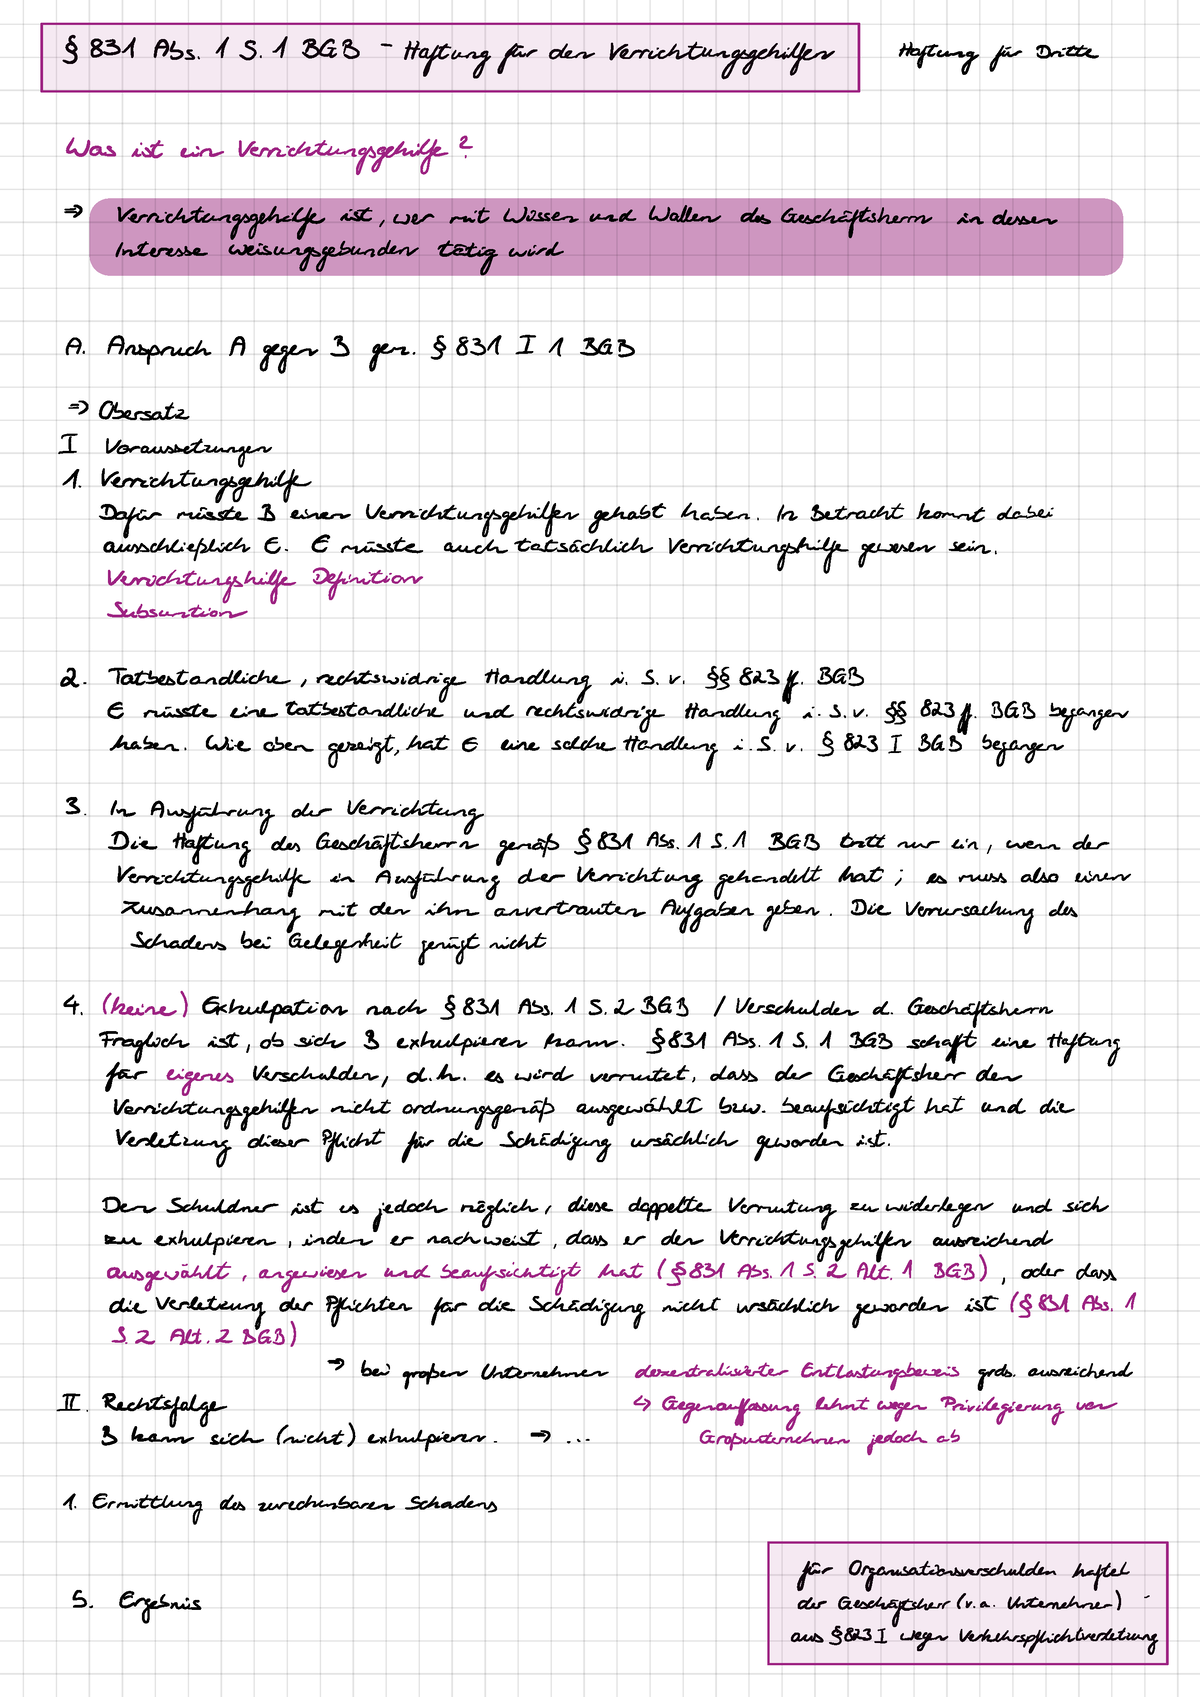 § 831 Abs. 1 S. 1 BGB - Haftung für den Verrichtungsgehilfen
Haftung für Dritte
Was ist ein Verrichtungsgehilfe?
⇒ Verrichtungsgehilfe ist, wer mit Wissen und Wollen des Geschäftsherrn in dessen
Interesse weisungsgebunden tätig wird
A. Anspruch A gegen B gem. § 831 I 1 BGB
⇒ Obersatz
I Voraussetzungen
1. Verrichtungsgehilfe
Dafür müsste B einen Verrichtungsgehilfen gehabt haben. In Betracht kommt dabei
ausschließlich E. E müsste auch tatsächlich Verrichtungshilfe gewesen sein.
Verrichtungshilfe Definition
Subsumtion
2. Tatbestandliche, rechtswidrige Handlung i. S. v. §§ 823 ff. BGB
E müsste eine tatbestandliche und rechtswidrige Handlung i. S. v. §§ 823 ff. BGB begangen
haben. Wie oben gezeigt, hat E eine solche Handlung i. S. v. § 823 I BGB begangen
3. In Ausführung der Verrichtung
Die Haftung des Geschäftsherrn gemäß § 831 Abs. 1 S. 1 BGB tritt nur ein, wenn der
Verrichtungsgehilfe in Ausführung der Verrichtung gehandelt hat; es muss also einen
Zusammenhang mit den ihm anvertrauten Aufgaben geben. Die Verursachung des
Schadens bei Gelegenheit genügt nicht
4. (keine) Exkulpation nach § 831 Abs. 1 S. 2 BGB / Verschulden d. Geschäftsherrn
Fraglich ist, ob sich B exkulpieren kann. § 831 Abs. 1 S. 1 BGB schaft eine Haftung
für eigenes Verschulden, d.h. es wird vermutet, dass der Geschäftsherr den
Verrichtungsgehilfen nicht ordnungsgemäß ausgewählt bzw. beaufsichtigt hat und die
Verletzung dieser Pflicht für die Schädigung ursächlich geworden ist.
Dem Schuldner ist es jedoch möglich, diese doppelte Vermutung zu widerlegen und sich
zu exkulpieren, indem er nachweist, dass er den Verrichtungsgehilfen ausreichend
ausgewählt, angewiesen und beaufsichtigt hat (§ 831 Abs. 1 S. 2 Alt. 1 BGB), oder dass
die Verletzung der Pflichten für die Schädigung nicht ursächlich geworden ist (§ 831 Abs. 1
S. 2 Alt. 2 BGB)
→ bei großen Unternehmen dezentralisierter Entlastungsbeweis grds. ausreichend
↳ Gegenauffassung lehnt wegen Privilegierung von
Großunternehmen jedoch ab
II. Rechtsfolge
B kann sich (nicht) exkulpieren. → ...
1. Ermittlung des zurechenbaren Schadens
5. Ergebnis
für Organisationsverschulden haftet
der Geschäftsherr (v.a. Unternehmen)
aus § 823 I wegen Verkehrspflichtverletzung